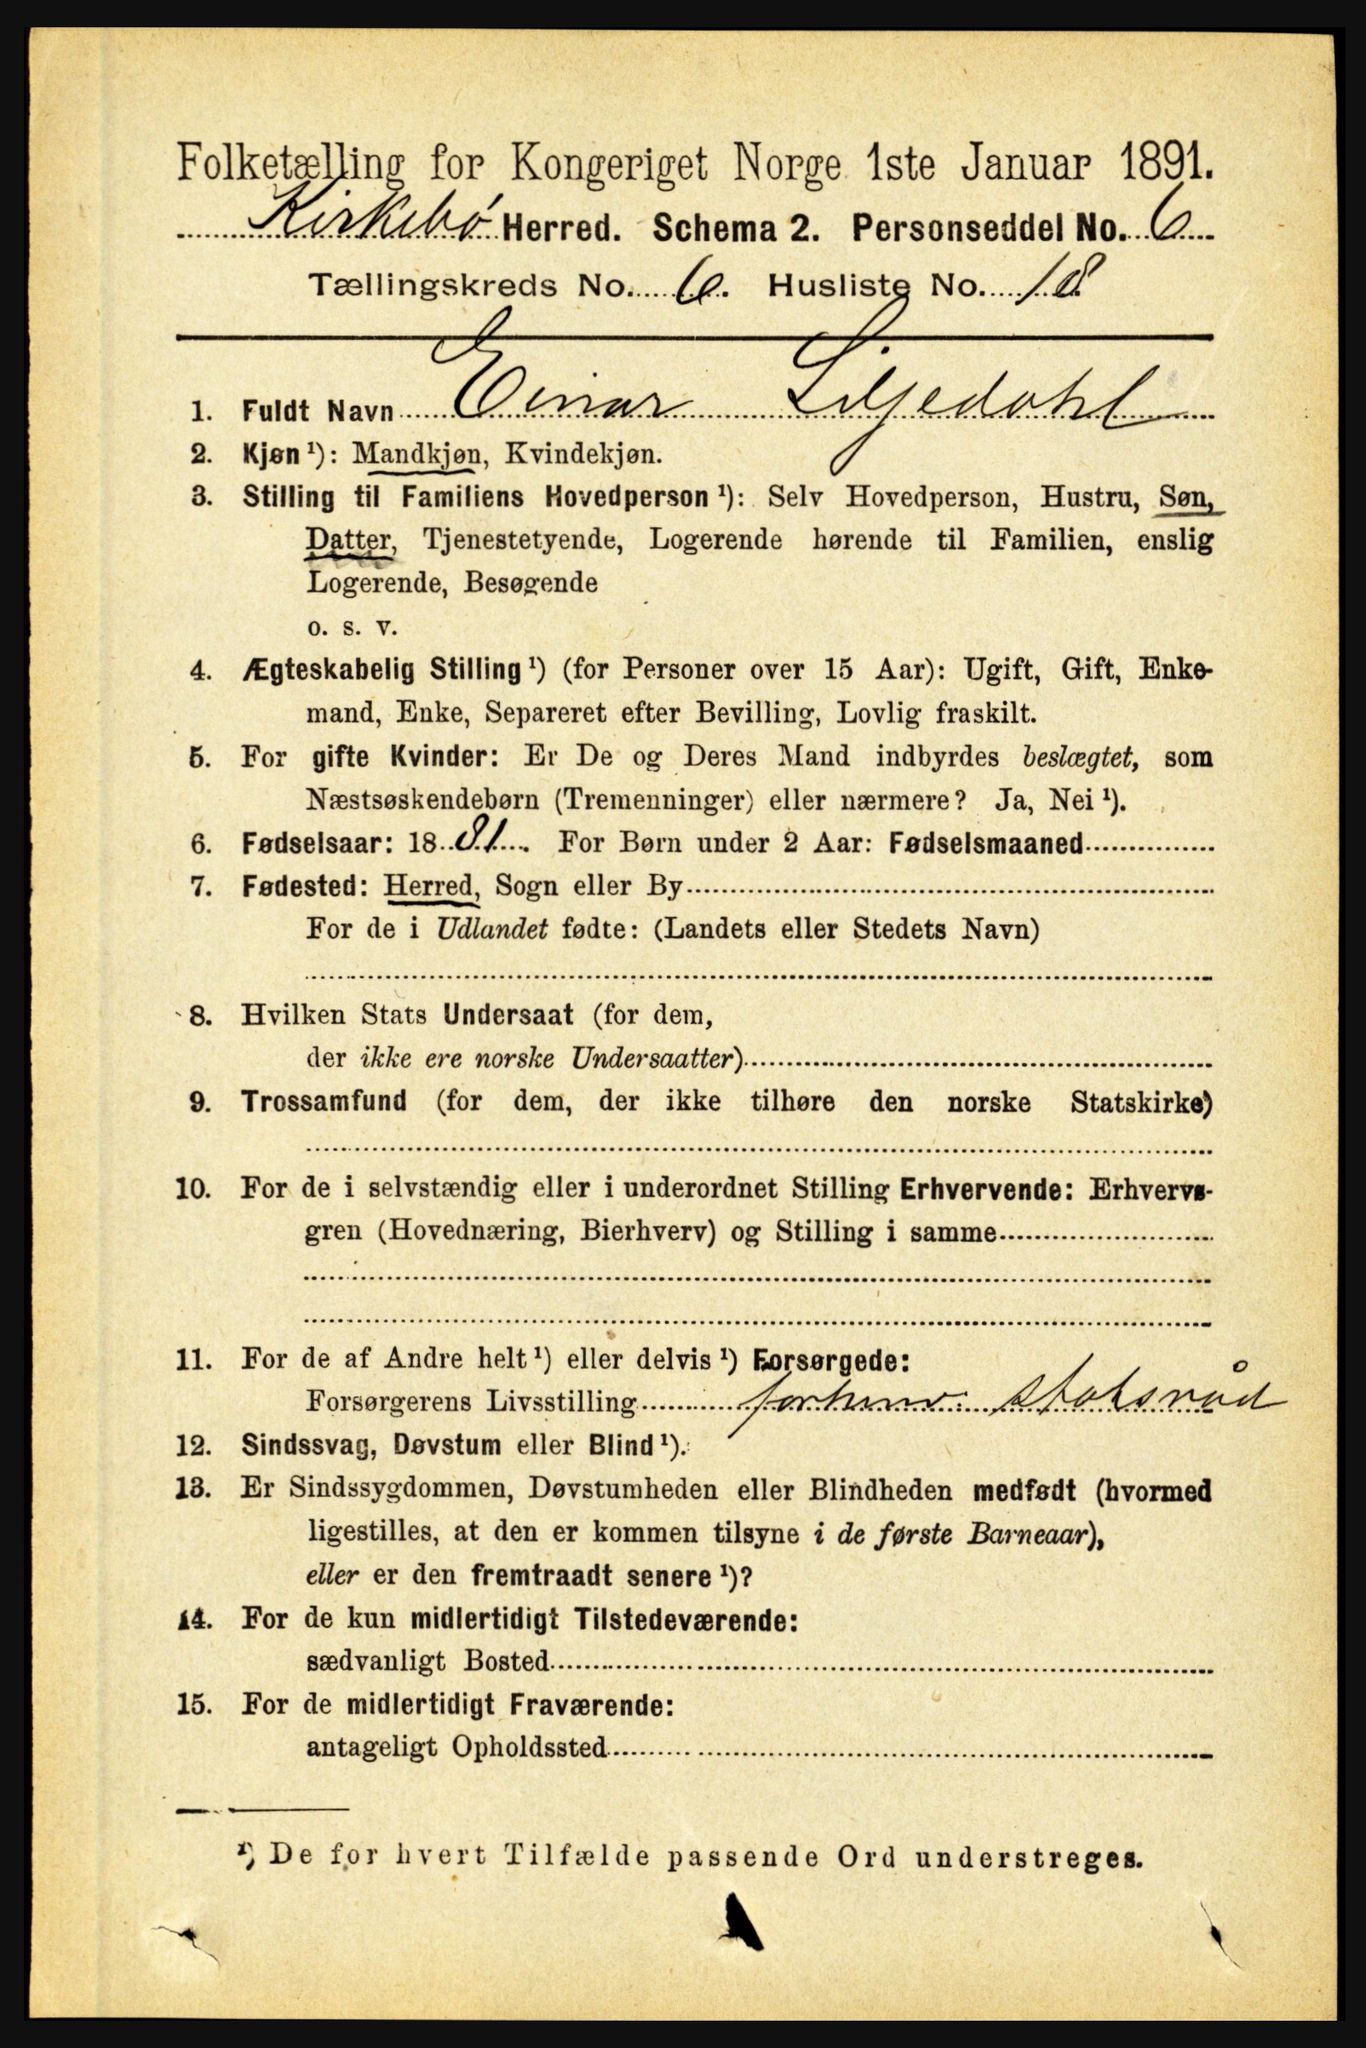 Folketælling for Kongeriget Norge 1ste Januar 1891.
Kirkebø Herred. Schema 2. Personseddel No. 6
Tællingskreds No. 6. Husliste No. 18
1. Fuldt Navn Einar Liljedahl
2. Kjøn ¹): Mandkjøn, Kvindekjøn.
3. Stilling til Familiens Hovedperson ¹): Selv Hovedperson, Hustru, Søn,
Datter, Tjenestetyende, Logerende hørende til Familien, enslig
Logerende, Besøgende
o. s. v.
4. Ægteskabelig Stilling ¹) (for Personer over 15 Aar): Ugift, Gift, Enke-
mand, Enke, Separeret efter Bevilling, Lovlig fraskilt.
5. For gifte Kvinder: Er De og Deres Mand indbyrdes beslægtet, som
Næstsøskendebørn (Tremenninger) eller nærmere? Ja, Nei ¹).
6. Fødselsaar: 1881. For Børn under 2 Aar: Fødselsmaaned
7. Fødested: Herred, Sogn eller By
For de i Udlandet fødte: (Landets eller Stedets Navn)
8. Hvilken Stats Undersaat (for dem,
der ikke ere norske Undersaatter)
9. Trossamfund (for dem, der ikke tilhøre den norske Statskirke)
10. For de i selvstændig eller i underordnet Stilling Erhvervende: Erhvervs-
gren (Hovednæring, Bierhverv) og Stilling i samme
11. For de af Andre helt ¹) eller delvis ¹) Forsørgede:
Forsørgerens Livsstilling forhenv. statsråd
12. Sindssvag, Døvstum eller Blind ¹).
13. Er Sindssygdommen, Døvstumheden eller Blindheden medfødt (hvormed
ligestilles, at den er kommen tilsyne i de første Barneaar),
eller er den fremtraadt senere ¹)?
14. For de kun midlertidigt Tilstedeværende:
sædvanligt Bosted
15. For de midlertidigt Fraværende:
antageligt Opholdssted
¹) De for hvert Tilfælde passende Ord understreges.